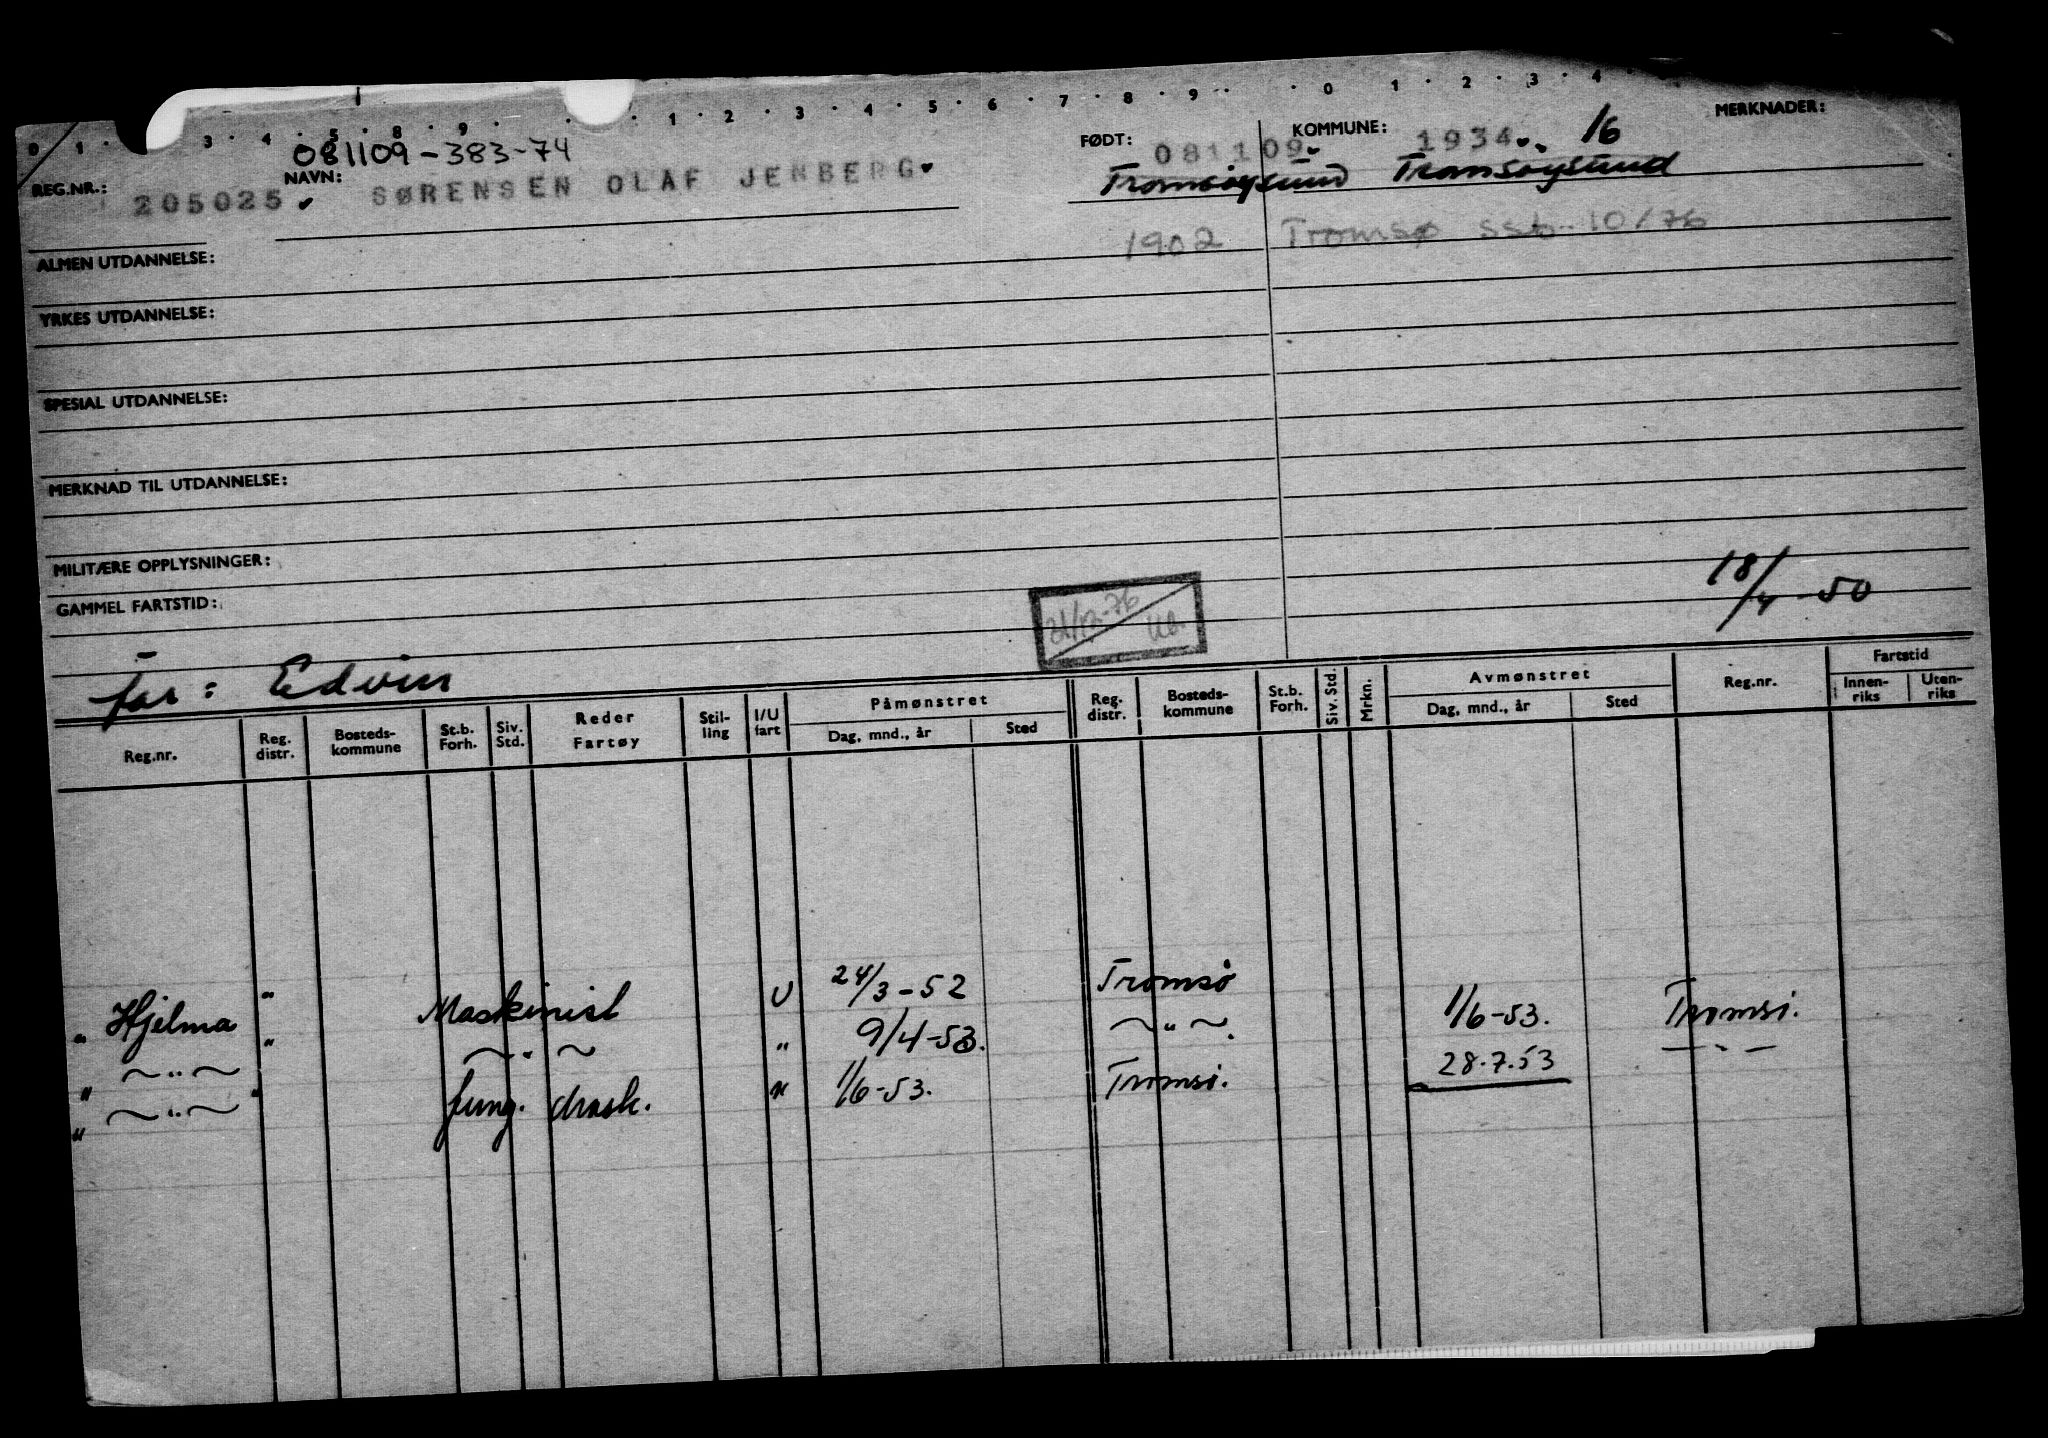 0 1 · 3 · 4 · 5 · 8 · 9 · · 1 · 2 · 3 · 4 · 5 · 6 · 7 · 8 · 9 · · 0 · 1 · 2 · 3 · 4 ·
081109-383-74
FØDT: 081109 KOMMUNE: 1934 16 MERKNADER:
REG.NR.: 205025 NAVN: SØRENSEN OLAF JENBERG Tromsøysund Tromsøysund
1902 Tromsø ssb - 10/76
ALMEN UTDANNELSE:
YRKES UTDANNELSE:
SPESIAL UTDANNELSE:
MERKNAD TIL UTDANNELSE:
MILITÆRE OPPLYSNINGER:
18/4-50
GAMMEL FARTSTID:
far: Edvin
Reg.nr. Reg. distr. Bosteds- kommune St.b. Forh. Siv. Std. Reder Fartøy Stil- ling I/U fart Påmønstret Dag, mnd., år Sted Reg. distr. Bosteds- kommune St.b. Forh. Siv. Std. Mrkn. Avmønstret Dag, mnd., år Sted Reg.nr. Fartstid Innen- riks Uten- riks
" Hjelma " Maskinist U 24/3-52 Tromsø 1/6-53. Tromsø.
" ~"~ " ~"~ " 9/4-53. ~"~. 28.7.53 —"—
" ~"~ " fung. mask. " 1/6-53. Tromsø.